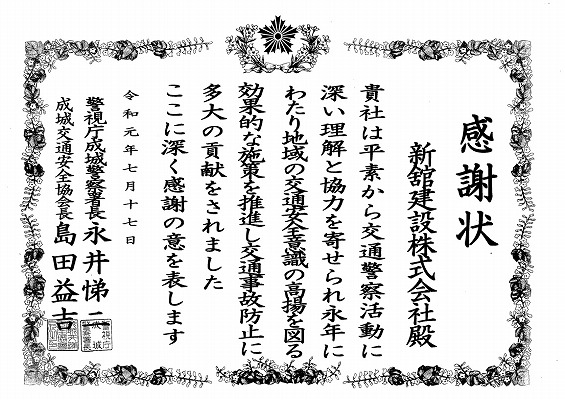 感謝状
新舘建設株式会社殿
貴社は平素から交通警察活動に
深い理解と協力を寄せられ永年に
わたり地域の交通安全意識の高揚を図る
効果的な施策を推進し交通事故防止に
多大の貢献をされました
ここに深く感謝の意を表します
令和元年七月十七日
警視庁成城警察署長 永井悌二
成城交通安全協会長 島田益吉